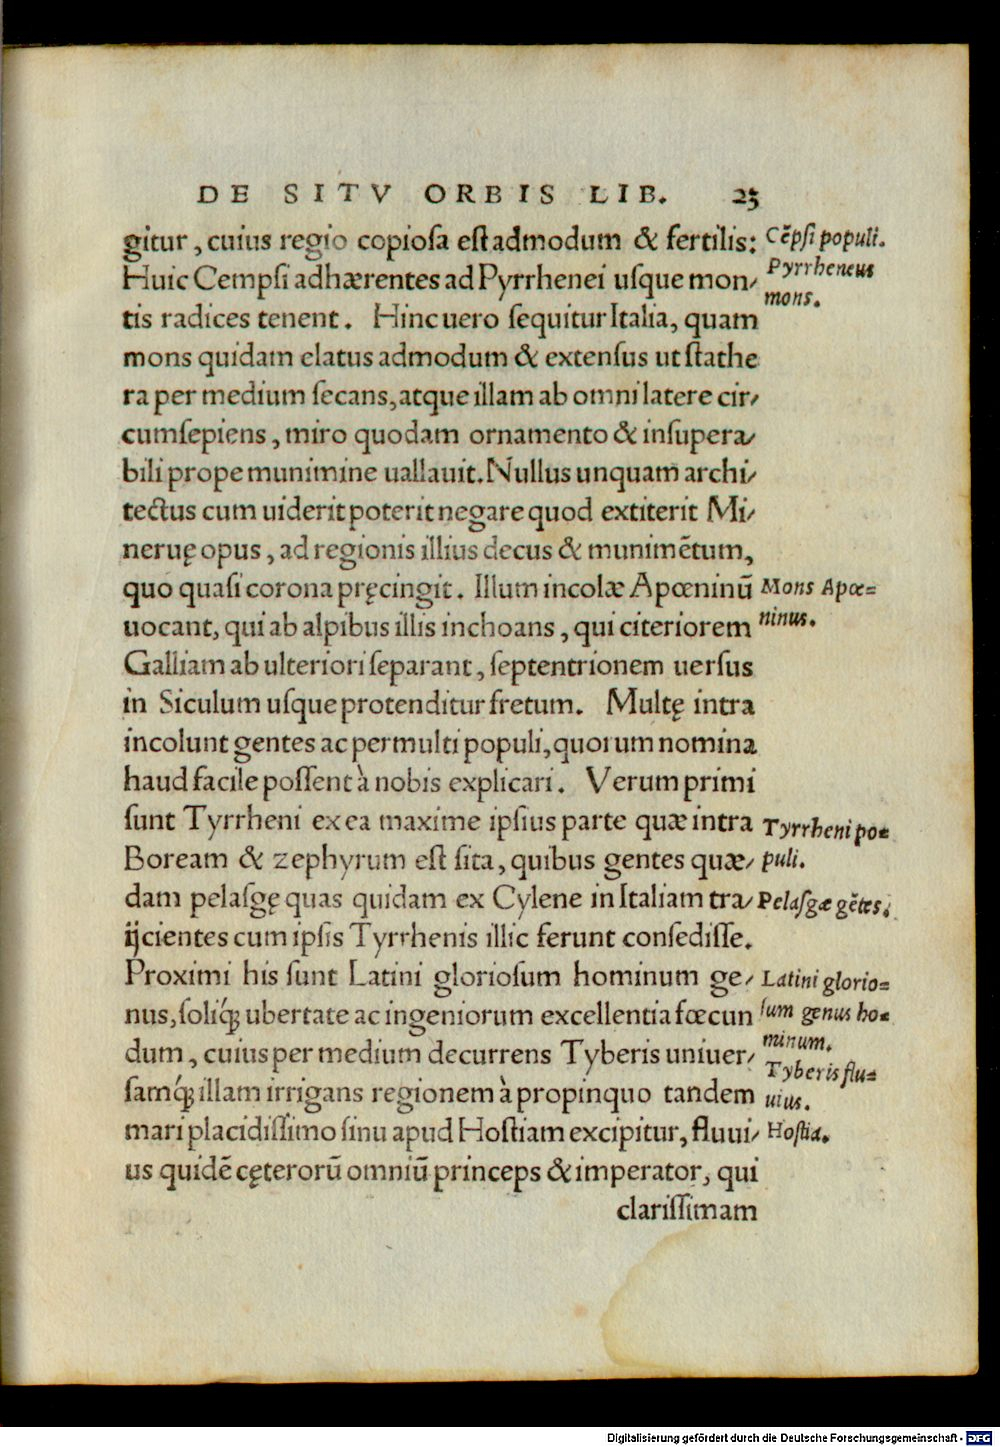 DE SITV ORBIS LIB. 25
gitur, cuius regio copiosa est admodum & fertilis: Cẽpsi populi.
Huic Cempsi adhærentes ad Pyrrhenei usque mon- Pyrrheneus
mons.
tis radices tenent. Hinc uero sequitur Italia, quam
mons quidam elatus admodum & extensus ut stathe
ra per medium secans, atque illam ab omni latere cir-
cumsepiens, miro quodam ornamento & insupera-
bili prope munimine uallauit. Nullus unquam archi-
tectus cum uiderit poterit negare quod extiterit Mi-
neruę opus, ad regionis illius decus & munimẽtum,
quo quasi corona pręcingit. Illum incolæ Apœninũ Mons Apœ=
uocant, qui ab alpibus illis inchoans, qui citeriorem ninus.
Galliam ab ulteriori separant, septentrionem uersus
in Siculum usque protenditur fretum. Multę intra
incolunt gentes ac permulti populi, quorum nomina
haud facile possent à nobis explicari. Verum primi
sunt Tyrrheni ex ea maxime ipsius parte quæ intra Tyrrheni po=
Boream & zephyrum est sita, quibus gentes quæ- puli.
dam pelasgę quas quidam ex Cylene in Italiam tra- Pelasgæ gẽtes.
ijcientes cum ipsis Tyrrhenis illic ferunt consedisse.
Proximi his sunt Latini gloriosum hominum ge- Latini glorio=
nus, soliq́; ubertate ac ingeniorum excellentia fœcun sum genus ho=
dum, cuius per medium decurrens Tyberis uniuer- minum.
Tyberis flu=
samq́; illam irrigans regionem à propinquo tandem uius.
mari placidissimo sinu apud Hostiam excipitur, fluui- Hostia.
us quidẽ cęterorũ omniũ princeps & imperator, qui
clarissimam
Digitalisierung gefördert durch die Deutsche Forschungsgemeinschaft - DFG